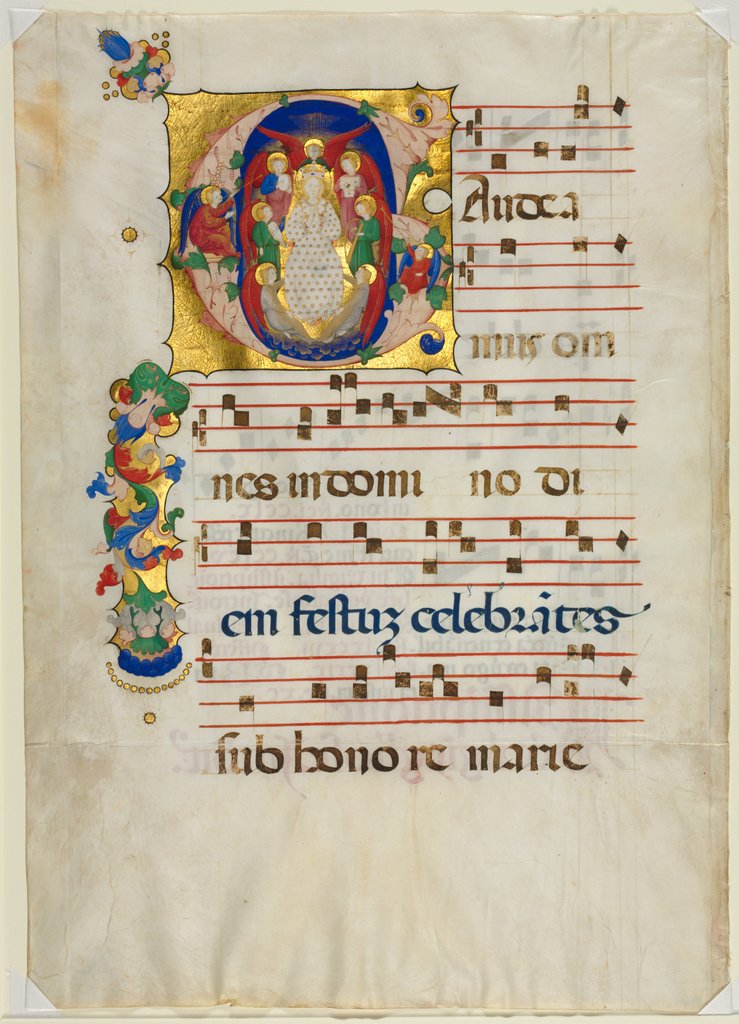 G
Audea
mus om
nes in domi no di
em festuʒ celebrātes
sub hono re marie